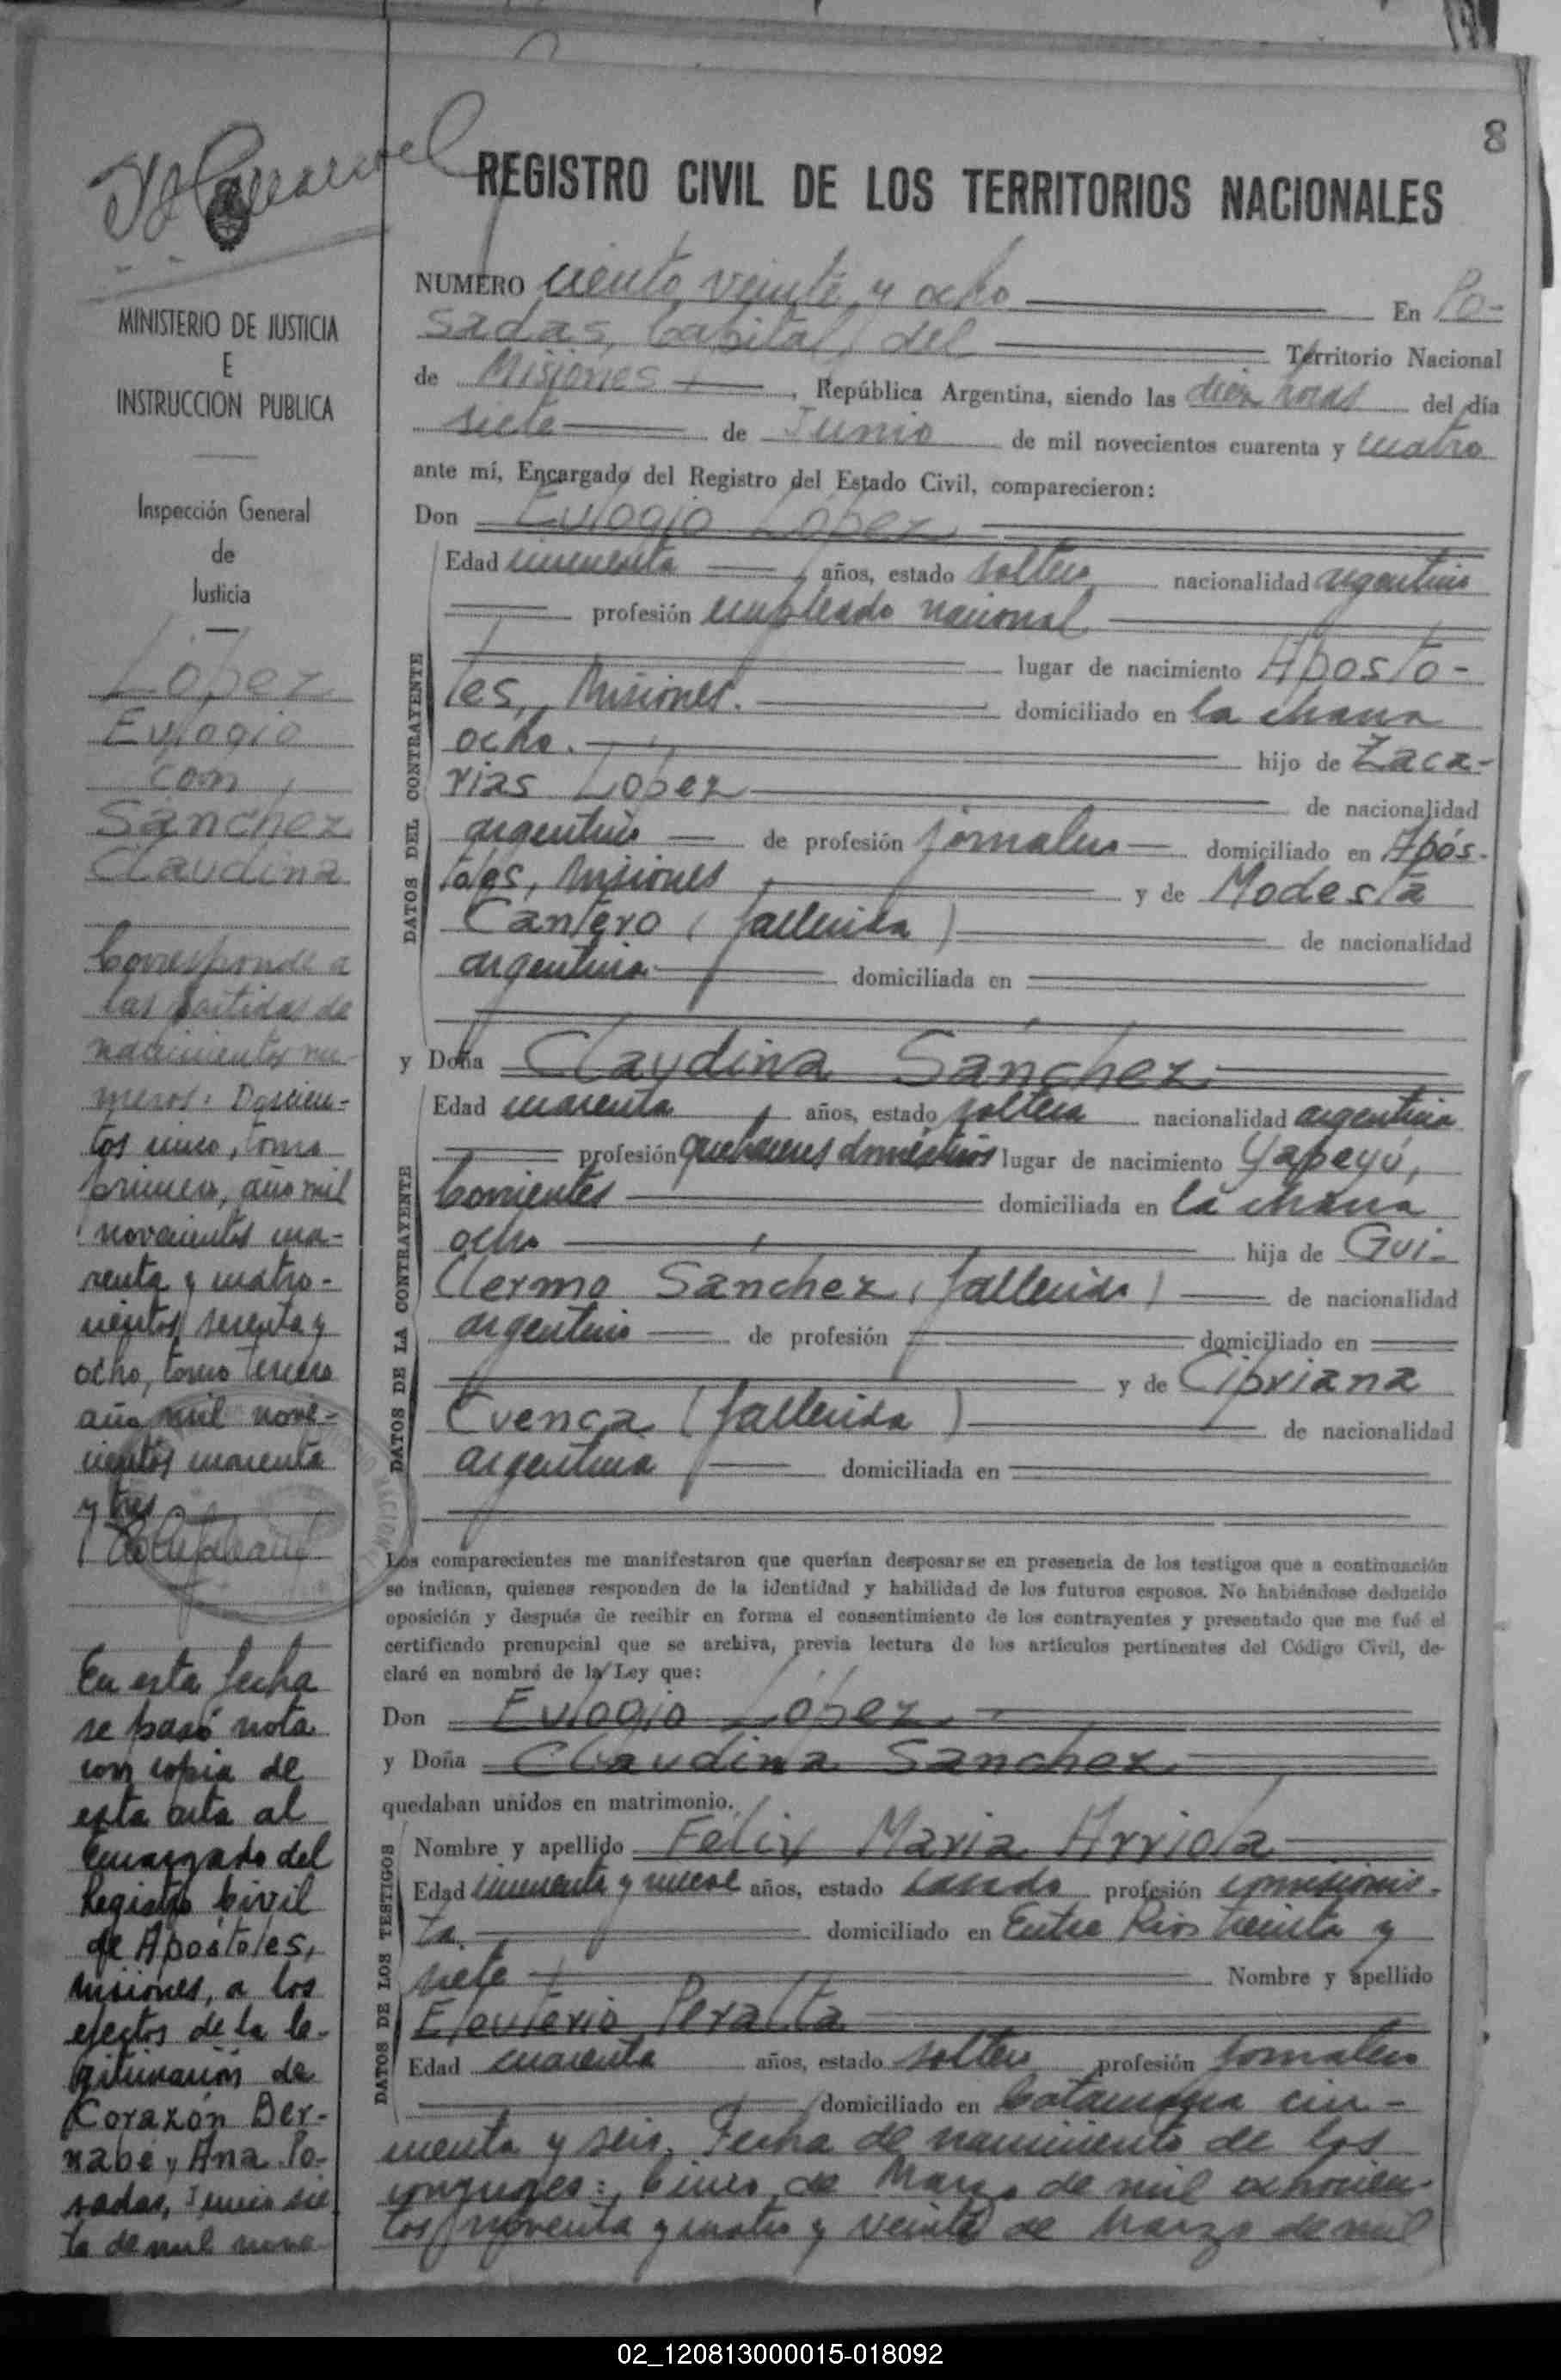 8
REGISTRO CIVIL DE LOS TERRITORIOS NACIONALES
MINISTERIO DE JUSTICIA
E
INSTRUCCION PUBLICA
Inspección General
de
Justicia
López
Eulogio
con
Sánchez
Claudina
Corresponde a
las partidas de
nacimientos nu-
meros: Doscien-
tos cinco, tomo
primero, año mil
novecientos cua-
renta y cuatro-
cientos sesenta y
ocho, tomo tercero
año mil nove-
cientos cuarenta
y tres
En esta fecha
se pasó nota
con copia de
esta acta al
Encargado del
Registro Civil
de Apostoles,
Misiones, a los
efectos de la le-
gitimación de
Corazón Ber-
nabé y Ana. Po-
sadas, Junio sie
te de mil nove-
NUMERO ciento veinte y ocho En Po-
sadas, Capital, del Territorio Nacional
de Misiones, República Argentina, siendo las diez horas del día
siete de Junio de mil novecientos cuarenta y cuatro
ante mí, Encargado del Registro del Estado Civil, comparecieron:
Don Eulogio López
DATOS DEL CONTRAYENTE
Edad cincuenta años, estado soltero nacionalidad argentino
profesión empleado nacional
lugar de nacimiento Aposto-
les, Misiones. domiciliado en la chacra
ocho. hijo de Zaca-
rias López de nacionalidad
argentino de profesión jornalero domiciliado en Após-
toles, Misiones y de Modesta
Cantero (fallecida) de nacionalidad
argentina domiciliada en
y Doña Claudina Sánchez
DATOS DE LA CONTRAYENTE
Edad cuarenta años, estado soltera nacionalidad argentina
profesión quehaceres domésticos lugar de nacimiento Yapeyú,
Corrientes domiciliada en la chacra
ocho hija de Gui-
llermo Sánchez, (fallecido) de nacionalidad
argentino de profesión domiciliado en
y de Cipriana
Cuenca (fallecida) de nacionalidad
argentina domiciliada en
Los comparecientes me manifestaron que querían desposarse en presencia de los testigos que a continuación
se indican, quienes responden de la identidad y habilidad de los futuros esposos. No habiéndose deducido
oposición y después de recibir en forma el consentimiento de los contrayentes y presentado que me fué el
certificado prenupcial que se archiva, previa lectura de los artículos pertinentes del Código Civil, de-
claré en nombre de la Ley que:
Don Eulogio López
y Doña Claudina Sánchez
quedaban unidos en matrimonio.
DATOS DE LOS TESTIGOS
Nombre y apellido Félix María Arriola
Edad cincuenta y nueve años, estado casado profesión comisionis-
ta. domiciliado en Entre Rios treinta y
siete Nombre y apellido
Eleuterio Peralta
Edad cuarenta años, estado soltero profesión jornalero
domiciliado en Catamarca cin-
cuenta y seis. Fecha de nacimiento de los
conyuges: Cinco de Marzo de mil ochocien-
tos noventa y cuatro y veinte de Marzo de mil
02_120813000015-018092